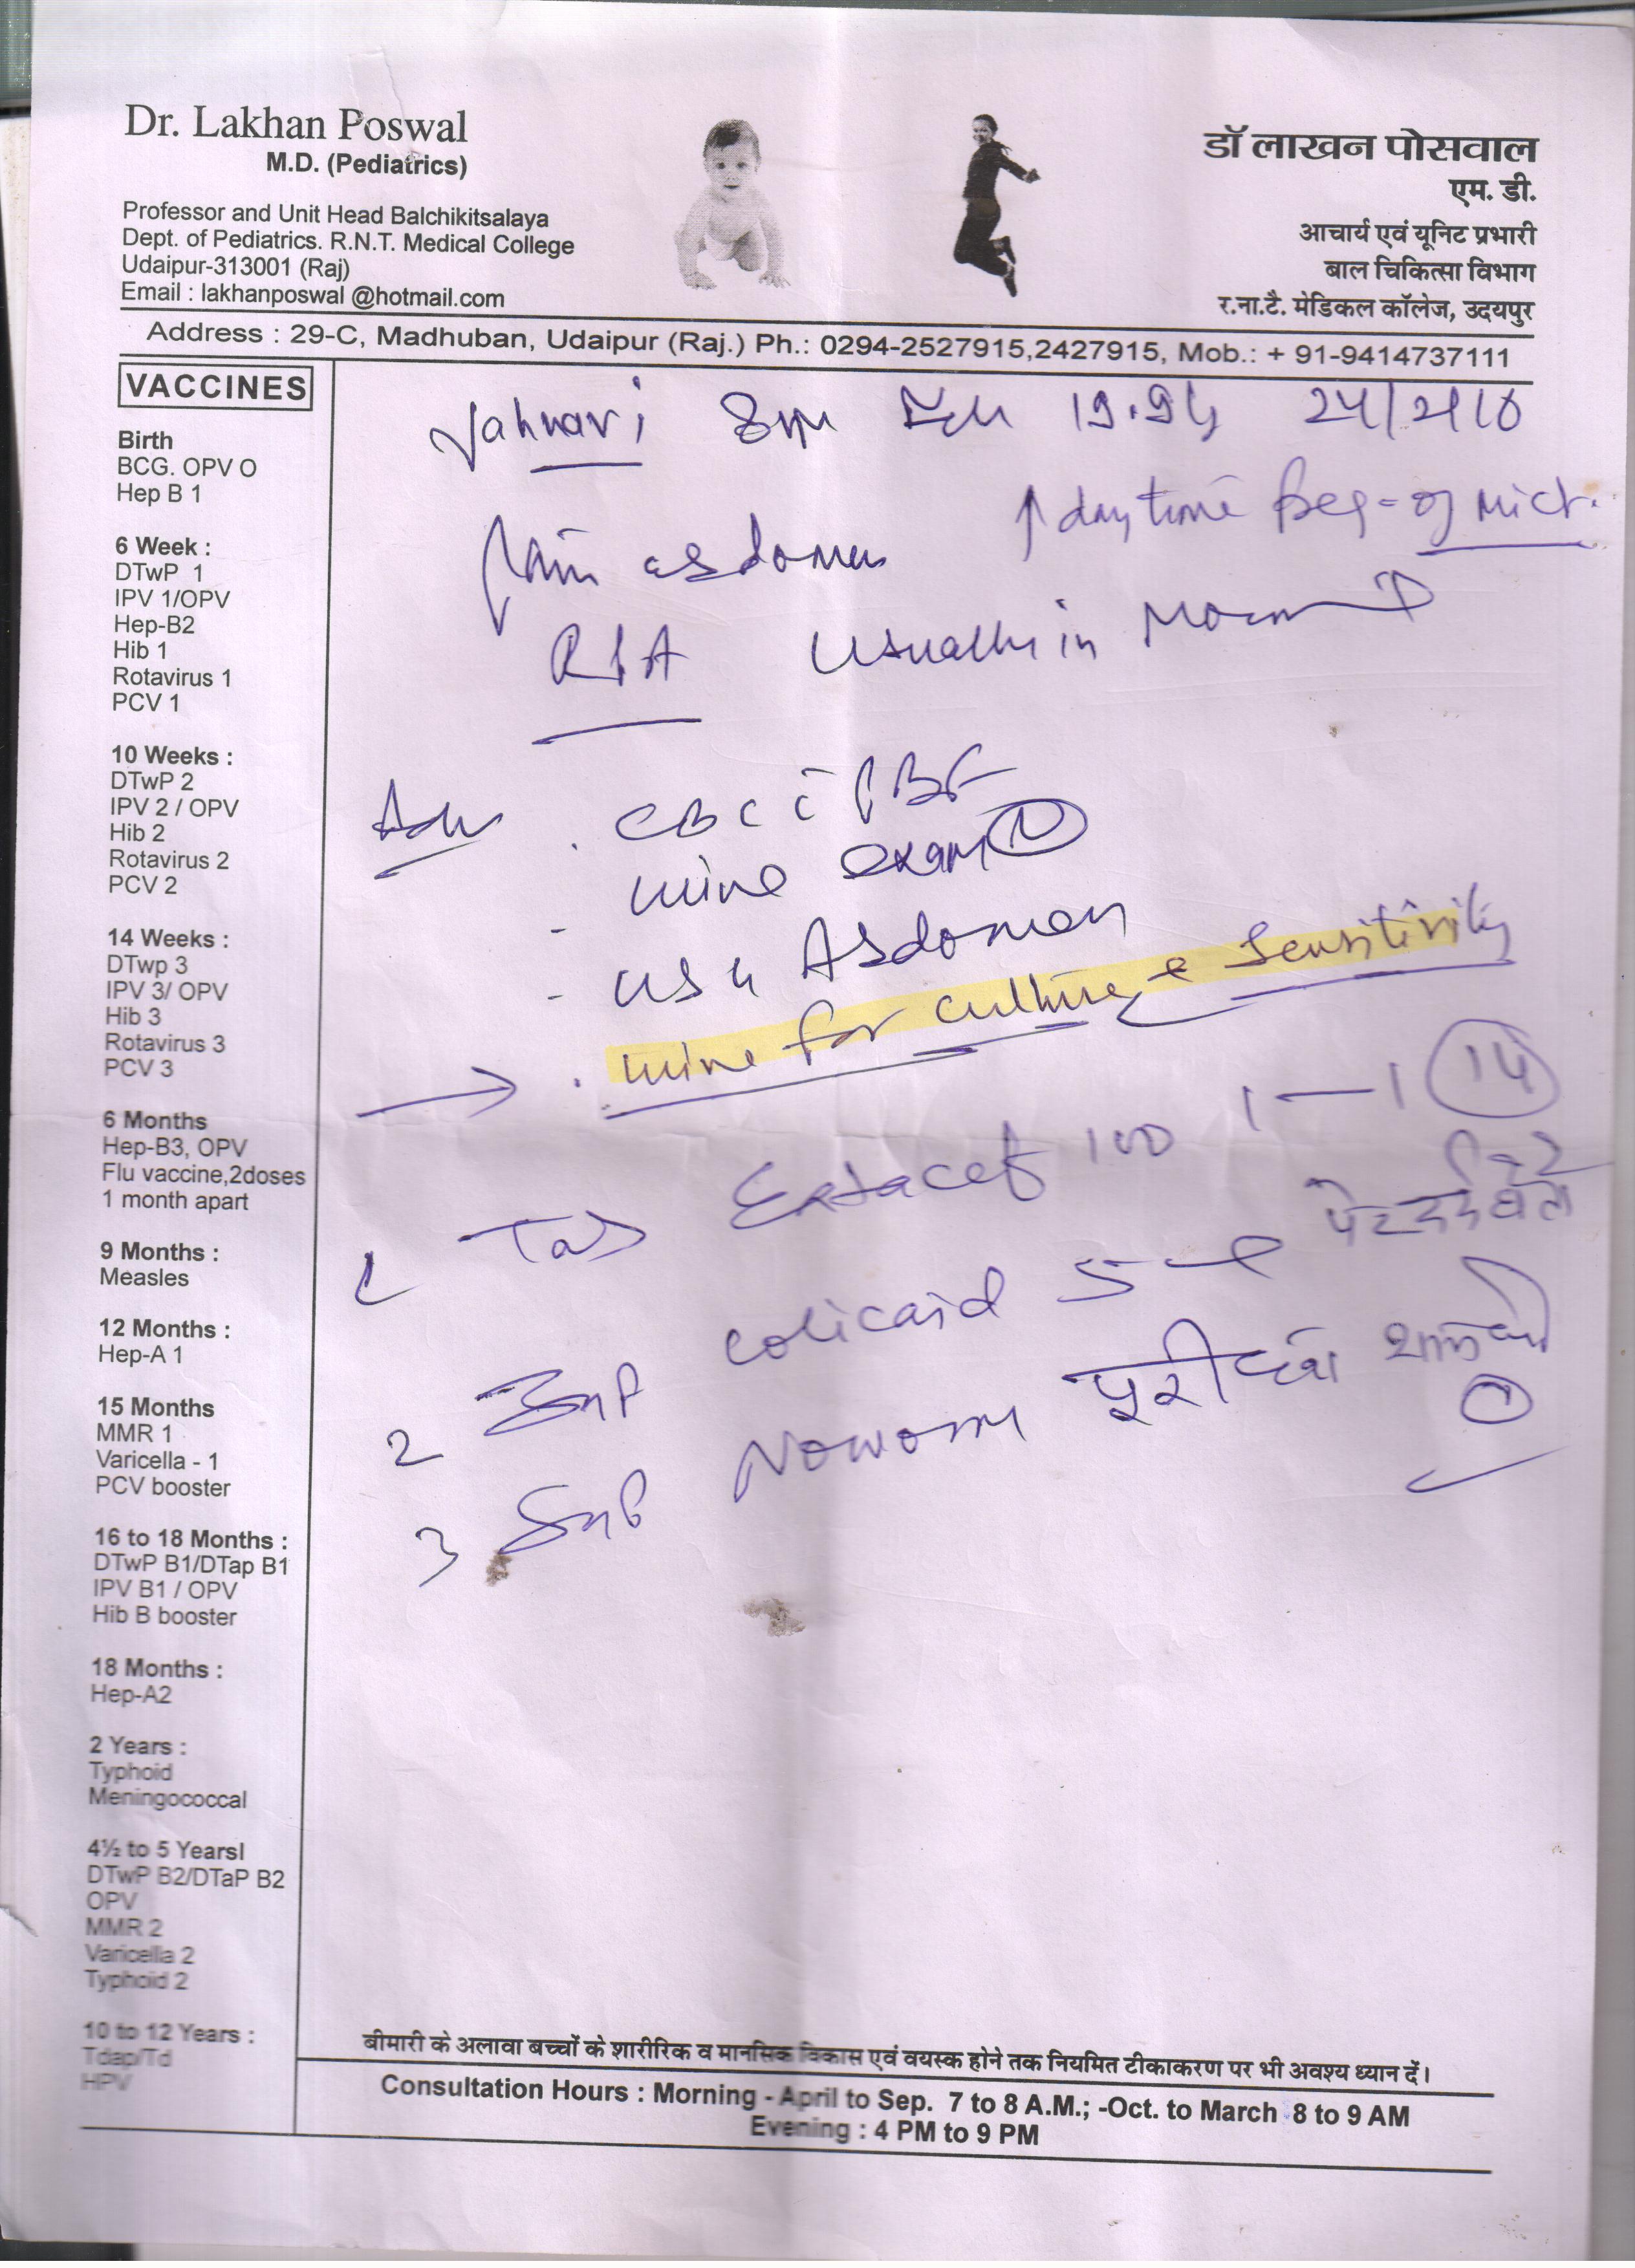 Dr. Lakhan Poswal
M.D. (Pediatrics)
Professor and Unit Head Balchikitsalaya
Dept. of Pediatrics. R.N.T. Medical College
Udaipur-313001 (Raj)
Email : lakhanposwal @hotmail.com
डॉ लाखन पोसवाल
एम. डी.
आचार्य एवं यूनिट प्रभारी
बाल चिकित्सा विभाग
र.ना.टै. मेडिकल कॉलेज, उदयपुर
Address : 29-C, Madhuban, Udaipur (Raj.) Ph.: 0294-2527915,2427915, Mob.: + 91-9414737111
VACCINES
Birth
BCG. OPV O
Hep B 1
6 Week :
DTwP 1
IPV 1/OPV
Hep-B2
Hib 1
Rotavirus 1
PCV 1
10 Weeks :
DTwP 2
IPV 2 / OPV
Hib 2
Rotavirus 2
PCV 2
14 Weeks :
DTwp 3
IPV 3/ OPV
Hib 3
Rotavirus 3
PCV 3
6 Months
Hep-B3, OPV
Flu vaccine,2doses
1 month apart
9 Months :
Measles
12 Months :
Hep-A 1
15 Months
MMR 1
Varicella - 1
PCV booster
16 to 18 Months :
DTwP B1/DTap B1
IPV B1 / OPV
Hib B booster
18 Months :
Hep-A2
2 Years :
Typhoid
Meningococcal
4½ to 5 Yearsl
DTwP B2/DTaP B2
OPV
MMR 2
Varicella 2
Typhoid 2
10 to 12 Years :
Tdap/Td
HPV
Jahnavi
↑ daytime freq= of mict.
Pain abdomen
usually in
Adv . CBC c̄ PBF
urine exam (N)
- USG Abdomen
→ . urine for culture & sensitivity
1 Tab 100 1—1 (14)
2 Syp colicaid 5
3 Syp पूरी
बीमारी के अलावा बच्चों के शारीरिक व मानसिक विकास एवं वयस्क होने तक नियमित टीकाकरण पर भी अवश्य ध्यान दें।
Consultation Hours : Morning - April to Sep. 7 to 8 A.M.; -Oct. to March 8 to 9 AM
Evening : 4 PM to 9 PM